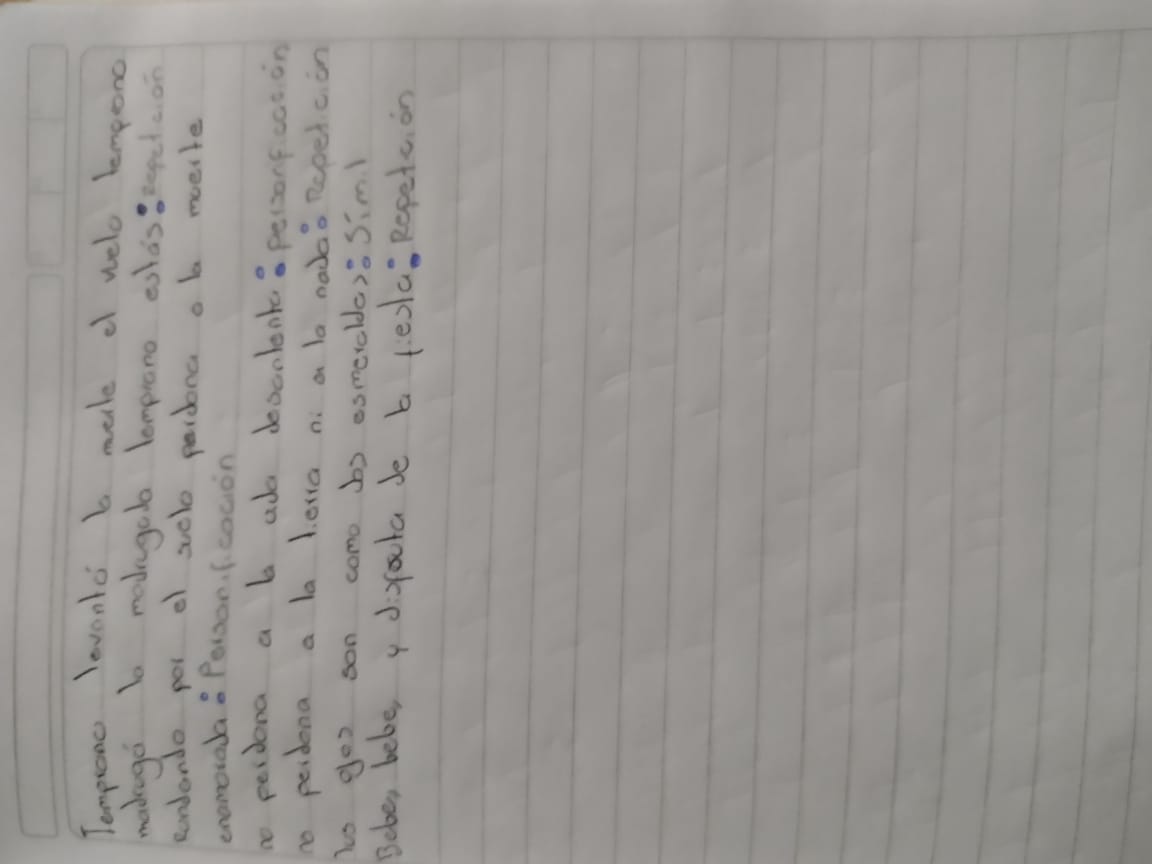 Temprano levantó la muerte el vuelo temprano
madrugó la madrugada temprano estás: Repetición
rondando por el suelo perdono a la muerte
enamorada: Personificación
no perdono a la vida desantenta: Personificación
no perdono a la tierra ni a la nada: Repetición
tus ojos son como las esmeraldas: Símil
Bebe, bebe, y disfruta de la fiesta: Repetición